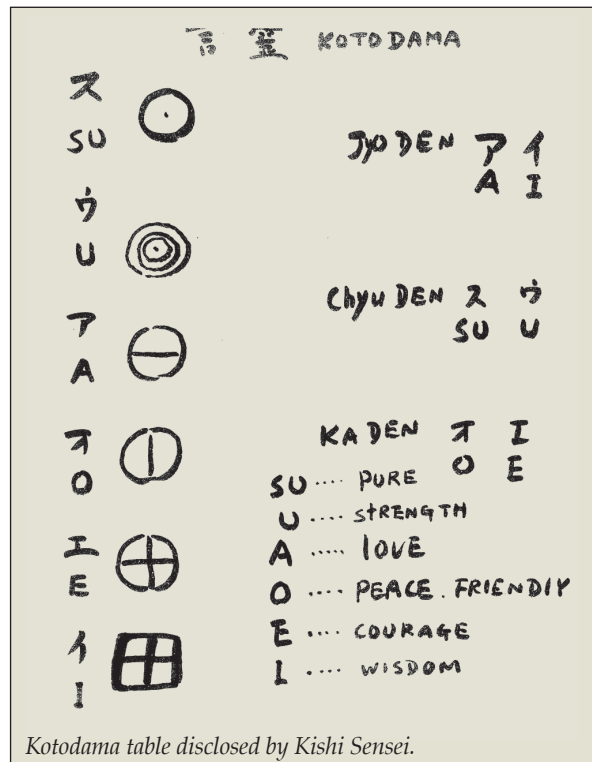 言 霊 KOTODAMA
ス
SU
ウ
U
ア
A
オ
O
エ
E
イ
I
JyO DEN ア イ
A I
Chyu DEN ス ウ
SU U
KA DEN オ エ
O E
SU .... PURE
U .... STRENGTH
A ..... LOVE
O .... PEACE. FRIENDLY
E .... COURAGE
I .... WISDOM
Kotodama table disclosed by Kishi Sensei.